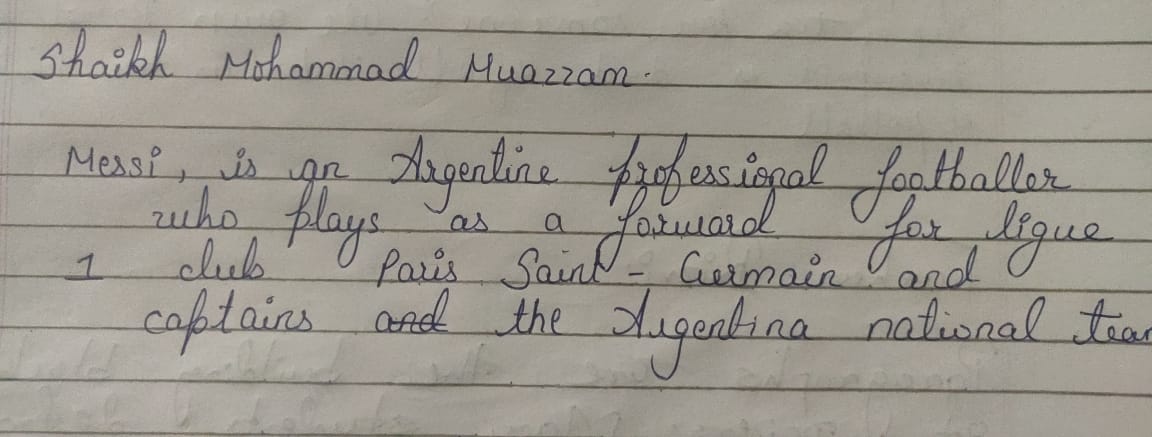 Shaikh Mohammad Muazzam.
Messi, is an Argentine professional footballer
who plays as a forward for ligue
1 club Paris Saint-Germain and
captains and the Argentina national team